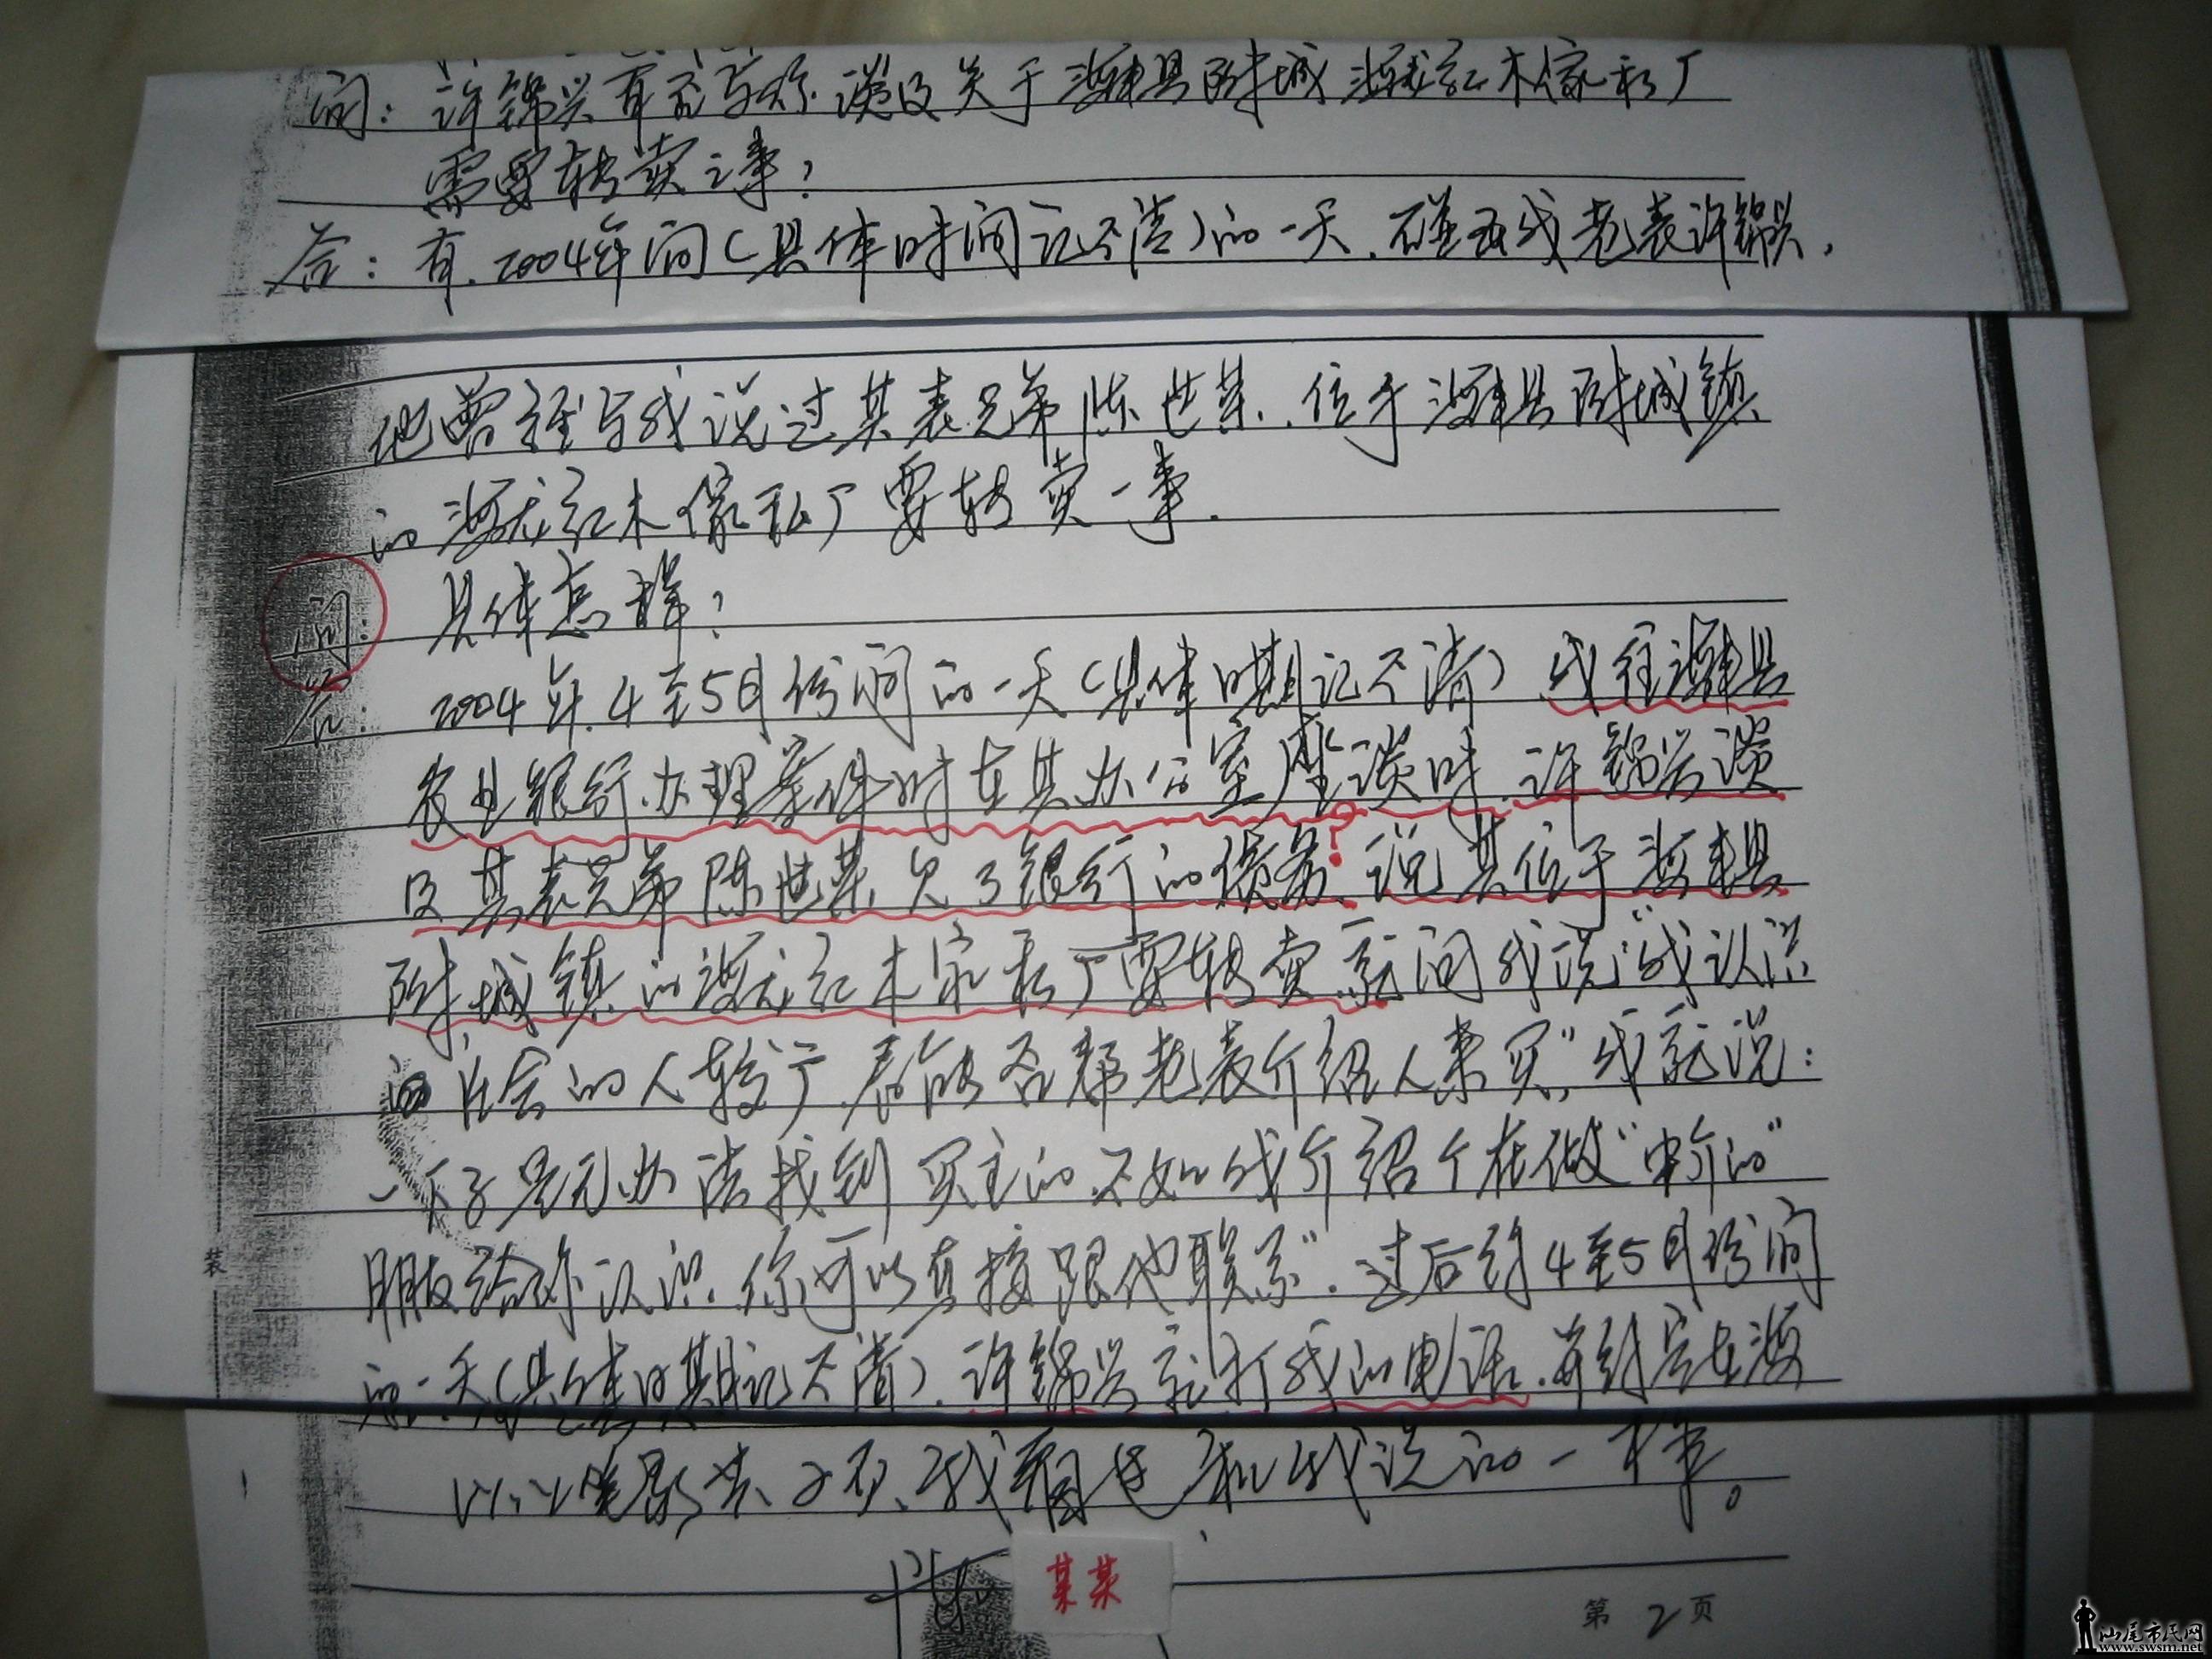 问：许锦兴有否与你谈及关于海丰县附城海龙红木傢私厂
需要转卖之事？
答：有，2004年间（具体时间记不清）的一天，碰到我老表许锦兴，
他曾经与我说过其表兄弟陈世某，位于海丰县附城镇
的海龙红木傢私厂要转卖一事。
问：具体怎样？
答：2004年4至5月份间的一天（具体日期记不清）我往海丰县
农业银行办理案件时在其办公室座谈时，许锦兴谈
及其表兄弟陈世某欠了银行的债务，说其位于海丰县
附城镇的海龙红木家私厂要转卖，就问我说：“我认识
的社会的人较广，看能否帮老表介绍人来买”，我就说：
一下子是无办法找到买主的，不如我介绍个在做“中介的”
朋友给你认识，你可以直接跟他联系”。过后到4至5月份间
的一天（具体日期记不清），许锦兴就打我的电话，并约定在海
以上笔录共2页，我看过和我说的一样。
某某
第2页
装
?
汕尾市民网
www.swsm.net